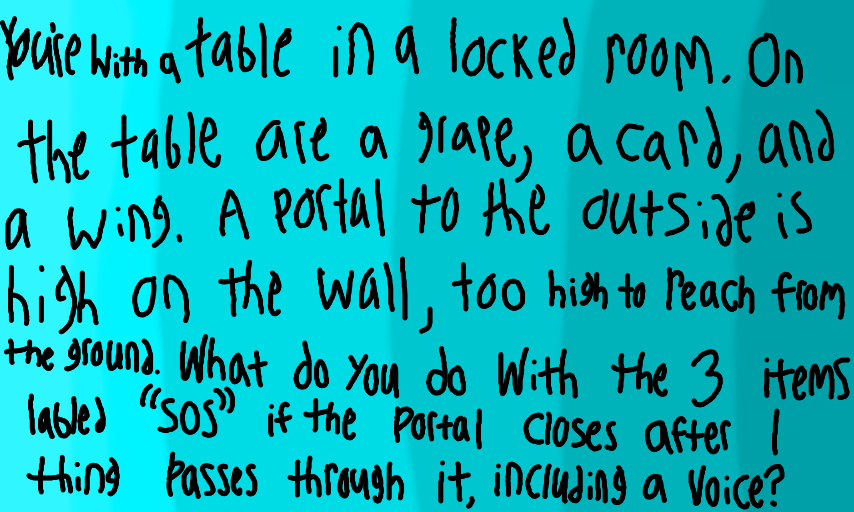 You're with a table in a locked room. On
the table are a grape, a card, and
a wing. A portal to the outside is
high on the wall, too high to reach from
the ground. What do you do with the 3 items
labled “SOS” if the portal closes after 1
thing passes through it, including a voice?